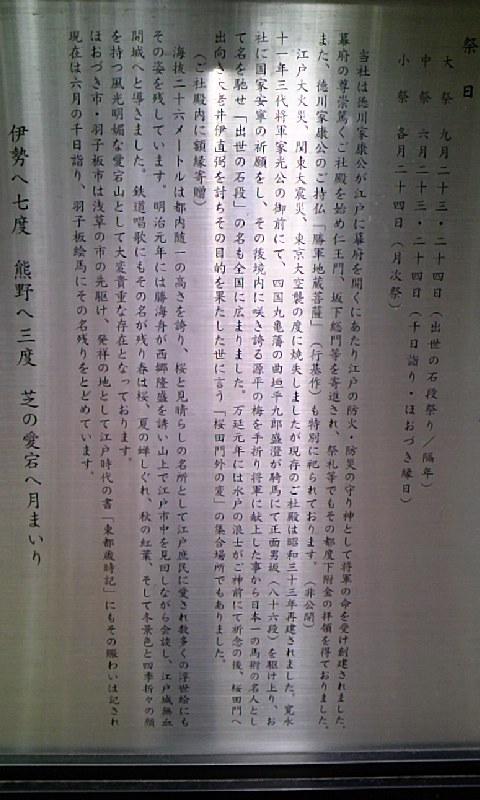 祭日
大祭 九月二十三・二十四日（出世の石段祭り／隔年）
中祭 六月二十三・二十四日（千日詣り・ほおづき縁日）
小祭 各月二十四日（月次祭）
当社は徳川家康公が江戸に幕府を開くにあたり江戸の防火・防災の守り神として将軍の命を受け創建されました。
幕府の尊崇篤くご社殿を始め仁王門、坂下総門等を寄進され、祭礼等でもその都度下附金の拝領を得ておりました。
また、徳川家康公のご持仏「勝軍地蔵菩薩」（行基作）も特別に祀られております。（非公開）
江戸大火災、関東大震災、東京大空襲の度に焼失しましたが現存のご社殿は昭和三十三年再建されました。寛永
十一年三代将軍家光公の御前にて、四国丸亀藩の曲垣平九郎盛澄が騎馬にて正面男坂（八十六段）を駆け上り、お
社に国家安寧の祈願をし、その後境内に咲き誇る源平の梅を手折り将軍に献上した事から日本一の馬術の名人とし
て名を馳せ「出世の石段」の名も全国に広まりました。万延元年には水戸の浪士がご神前にて祈念の後、桜田門へ
出向き大老井伊直弼を討ちその目的を果たした世に言う「桜田門外の変」の集合場所でもありました。
（ご社殿内に額縁寄贈）
海抜二十六メートルは都内随一の高さを誇り、桜と見晴らしの名所として江戸庶民に愛され数多くの浮世絵にも
その姿を残しています。明治元年には勝海舟が西郷隆盛を誘い山上で江戸市中を見回しながら会談し、江戸城無血
開城へと導きました。鉄道唱歌にもその名が残り春は桜、夏の蝉しぐれ、秋の紅葉、そして冬景色と四季折々の顔
を持つ風光明媚な愛宕山として大変貴重な存在となっております。
ほおづき市・羽子板市は浅草の市の先駆け、発祥の地として江戸時代の書「東都歳時記」にもその賑わいは記され
現在は六月の千日詣り、羽子板絵馬にその名残りをとどめています。
伊勢へ七度 熊野へ三度 芝の愛宕へ月まいり